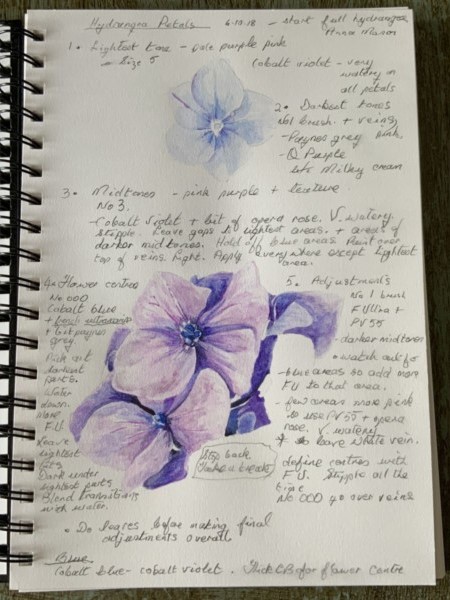 Hydrangea Petals 6.10.18 - start full hydrangea
Anna Mason
1. Lightest tone - pale purple pink
- Size 5
Cobalt violet - very
watery in
all petals
2. Darkest tones
No1 brush. + veins
- Paynes grey
pink.
- Q Purple
bit Milky cream
3. Midtones - pink purple + texture
No 3.
- Cobalt violet + bit of opera rose. V. watery.
Stipple. Leave gaps lightest areas. + areas of
darker midtones. Hold off blue areas. Paint over
top of veins. Light. Apply everywhere except lightest
area.
4. Flower centres
No 000
Cobalt blue
+ french ultramarine
+ bit paynes
grey.
Pick out
darkest
parts.
Water
down.
More
F.U.
Leave
lightest
bits
Dark under
lightest parts
Blend transitions
with water.
5. Adjustments
No 1 brush
F Ultra +
PV 55
- darker midtones
• watch out for
- blue areas so add more
FU to that area.
- few areas more pink
so use PV55 + opera
rose. V. watery
leave white vein.
define centres with
F.U. Stipple all the
time
No 000 go over veins
Step back
Take a break
• Do leaves before making final
adjustments overall
Blue
Cobalt blue - cobalt violet. Thick CB for flower centre